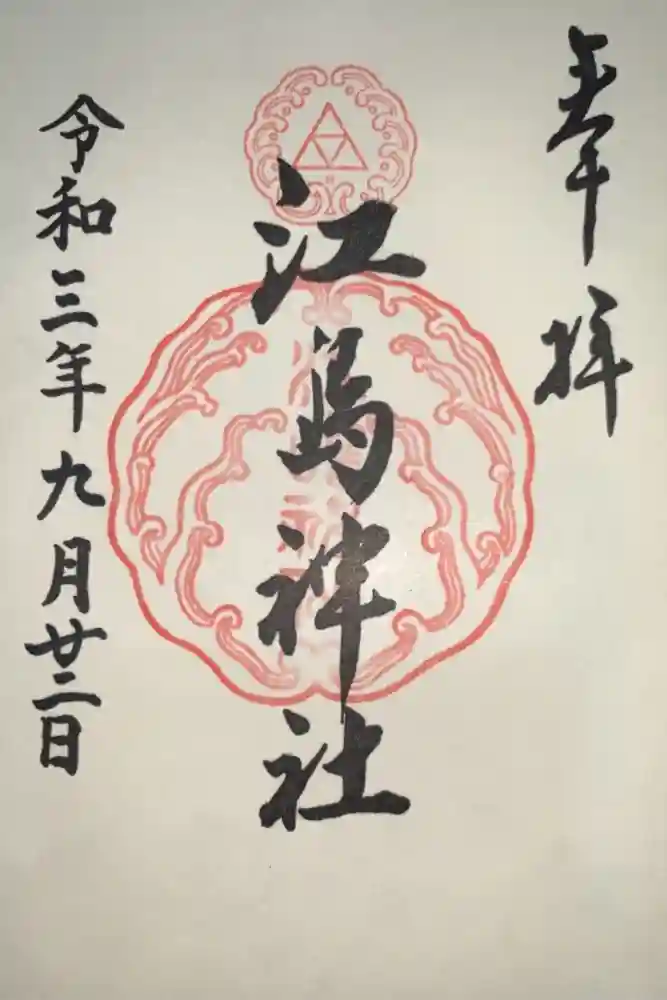 奉拝
江島神社
令和三年九月廿二日